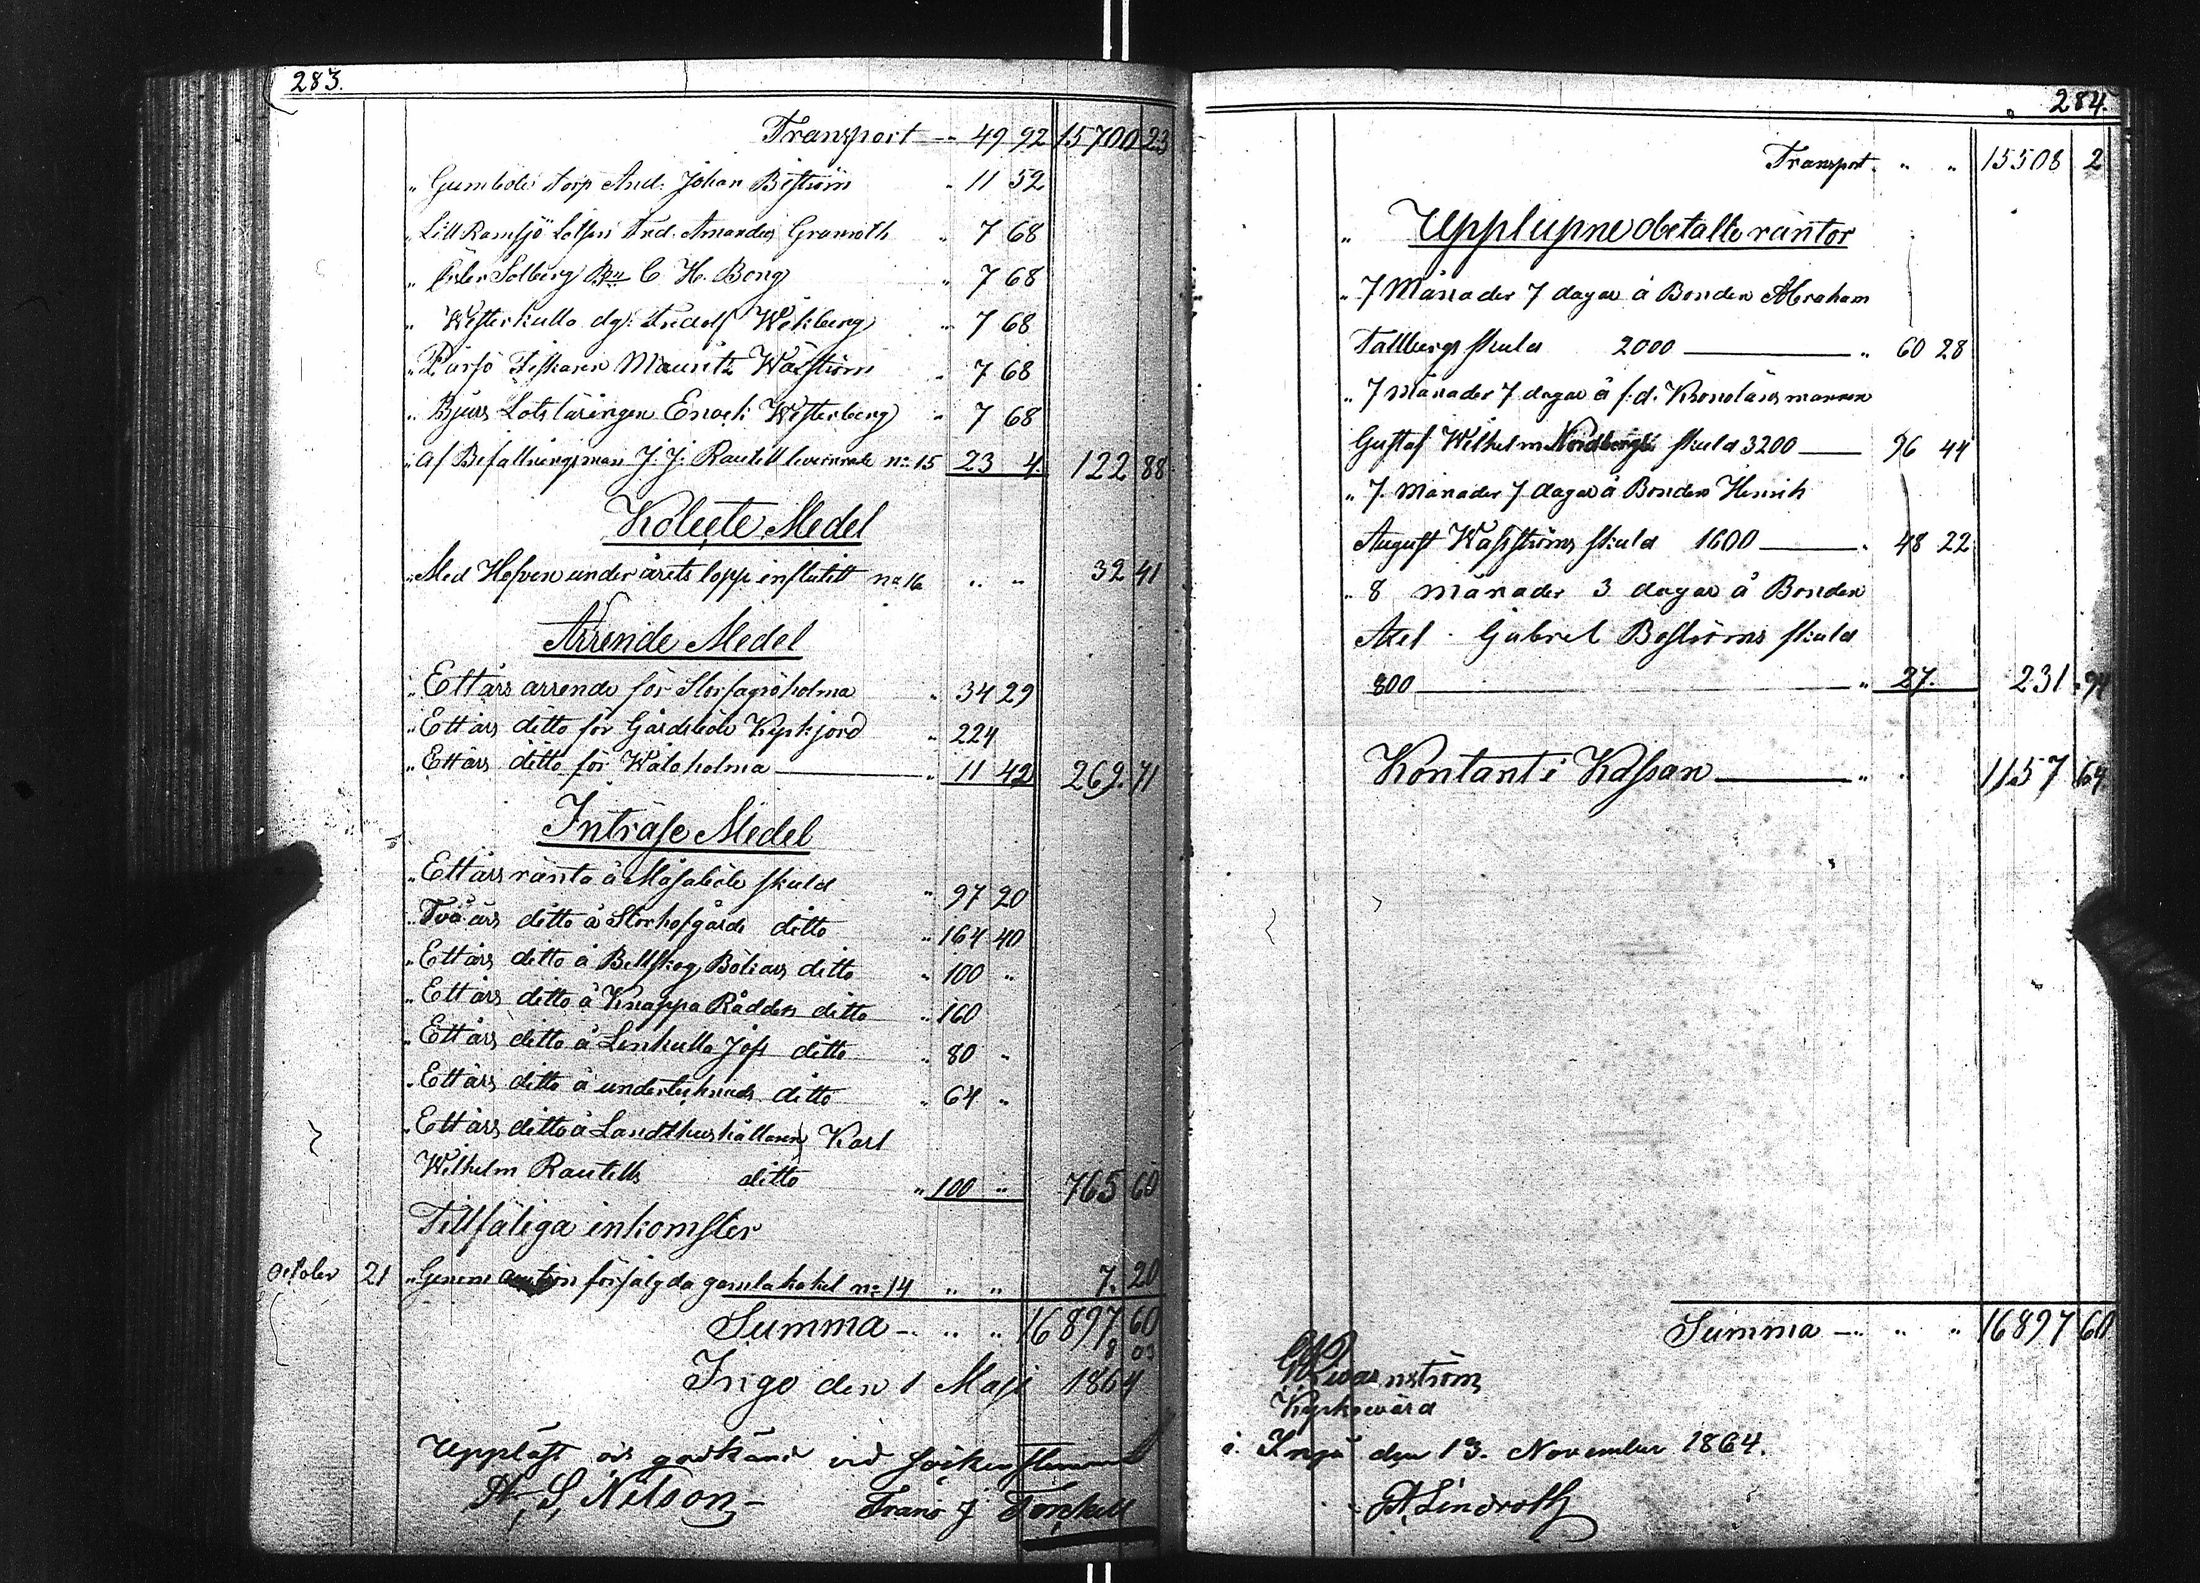 283.
Transport — 49 92 15700 23
" Gumbole torp And. Johan Biström " 11 52
" Lill Ramsjö Lotsen Fred. Amandus Granroth " 7 68
" Öster Solberg Bn C. H. Bong " 7 68
" Westerkulla dg: Fredolf Wikberg " 7 68
" Fiskaren Mauritz Waxström " 7 68
" Bjurs Lots läringen Enoch Westerberg " 7 68
" Af Befallningsman J. J. Rautell levererade no 15 23 4. 122 88
Kolecte Medel
" Med Hofven under årets lopp influtitt no 16 " " 32 41
Arrende Medel
" Ett års arrende för Storfagröholma " 34 29
" Ett års ditto för Gårdsböle Kyrkjord " 224
" Ett års ditto för Wålöholma — " 11 42 262. 71
Inträse Medel
" Ett års ränta å Måsaböle skuld " 97 20
" Två års ditto å Storhofgårds ditto " 164 40
" Ett års ditto å Bällskog Bölvars ditto " 100 "
" Ett års ditto å Knappa Rådden ditto " 160
" Ett års ditto å Linkulla Jofs ditto " 80 "
" Ett års ditto å undertecknads ditto " 64 "
" Ett års ditto å Landthushållaren Karl
Wilhelm Rautells ditto " 100 " 765 60
Tillfäliga inkomster
October 21 " Genom auction försålgda gamla kakel no 14 " " 7. 20
Summa — " " 16897 60
8 03
Ingo den 1 Maji 1864
Uppläst och godkänd vid sockenstämma
A. S. Nilson — Frans J Forsell
284.
Transport. " " 15508 2
" Upplupne obetalte räntor
" 7 Månader 7 dagar å Bonden Abraham
Tallbergs skuld 2000 — " 60 28
" 7 månader 7 dagar å f.d. Kronolänsmannen
Gustaf Wilhelm Nordbergs skuld 3200 — 96 44
" 7. månader 7 dagar å Bonden Henrik
August Wafströms skuld 1600 — " 48 22
" 8 månader 3 dagar å Bonden
Axel Gabriel Boströms skuld
800 — " 27. 231 94
Kontant i Kassan — " " 1157 64
Summa — " " 16897 60
Kyrkowärd
i. Ingå den 13. November 1864.
A. Lindroth